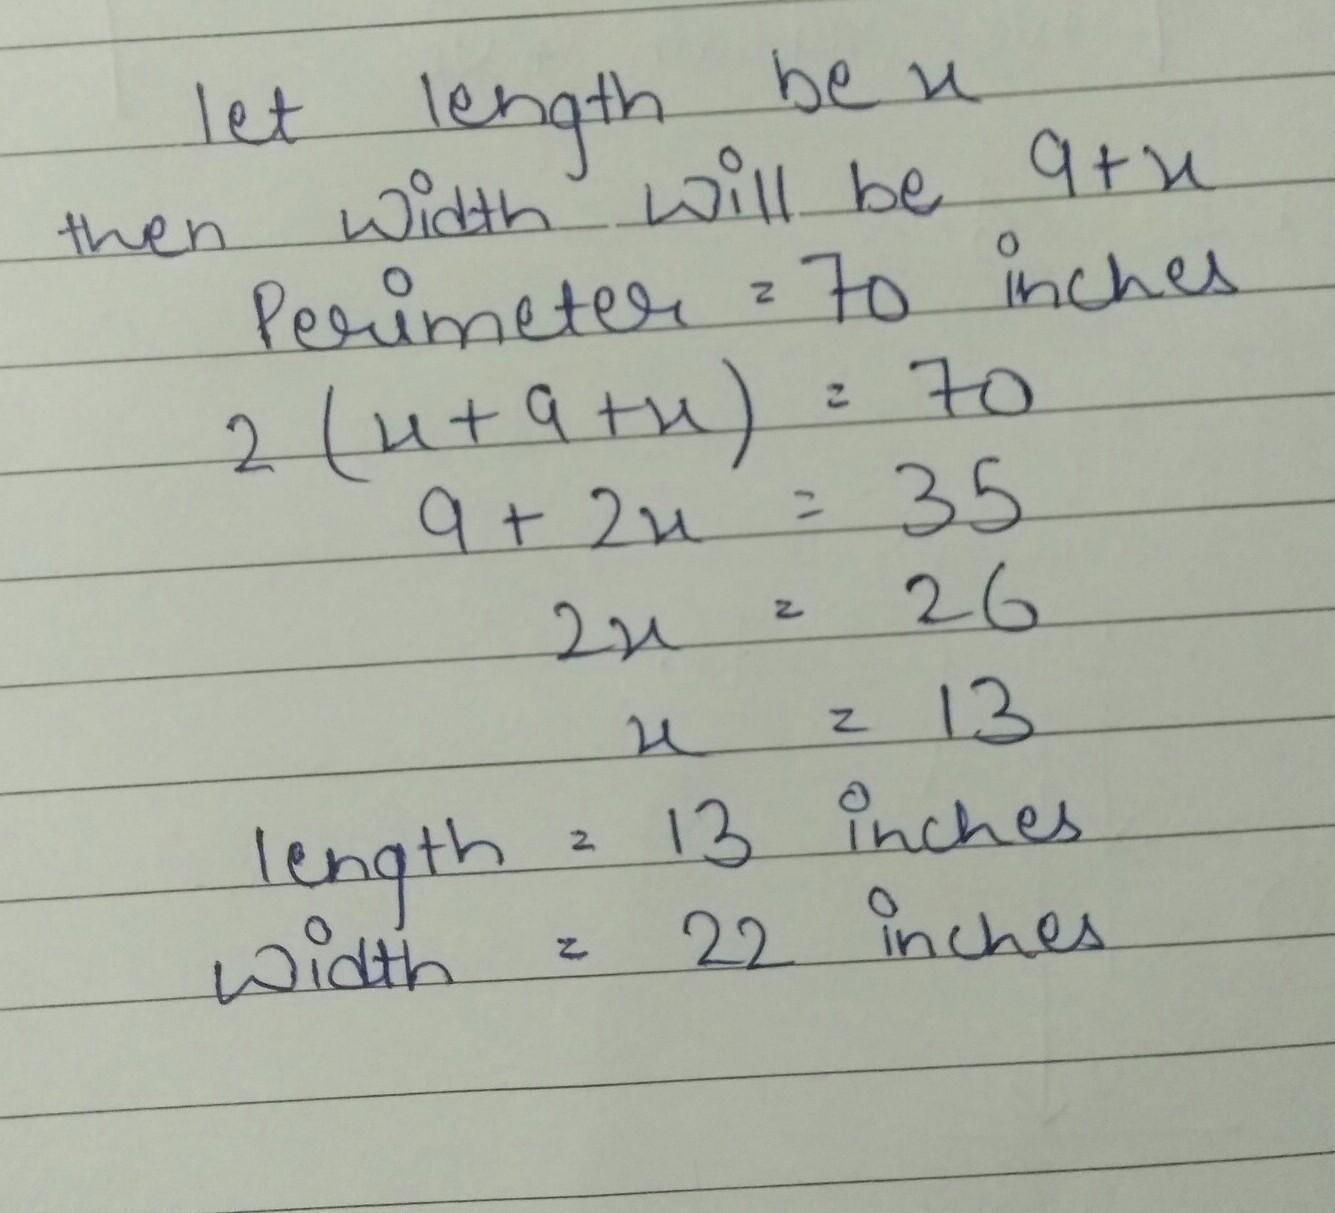 let length be x
then width will be 9+x
Perimeter = 70 inches
2 (x+9+x) = 70
9 + 2x = 35
2x = 26
x = 13
length = 13 inches
width = 22 inches